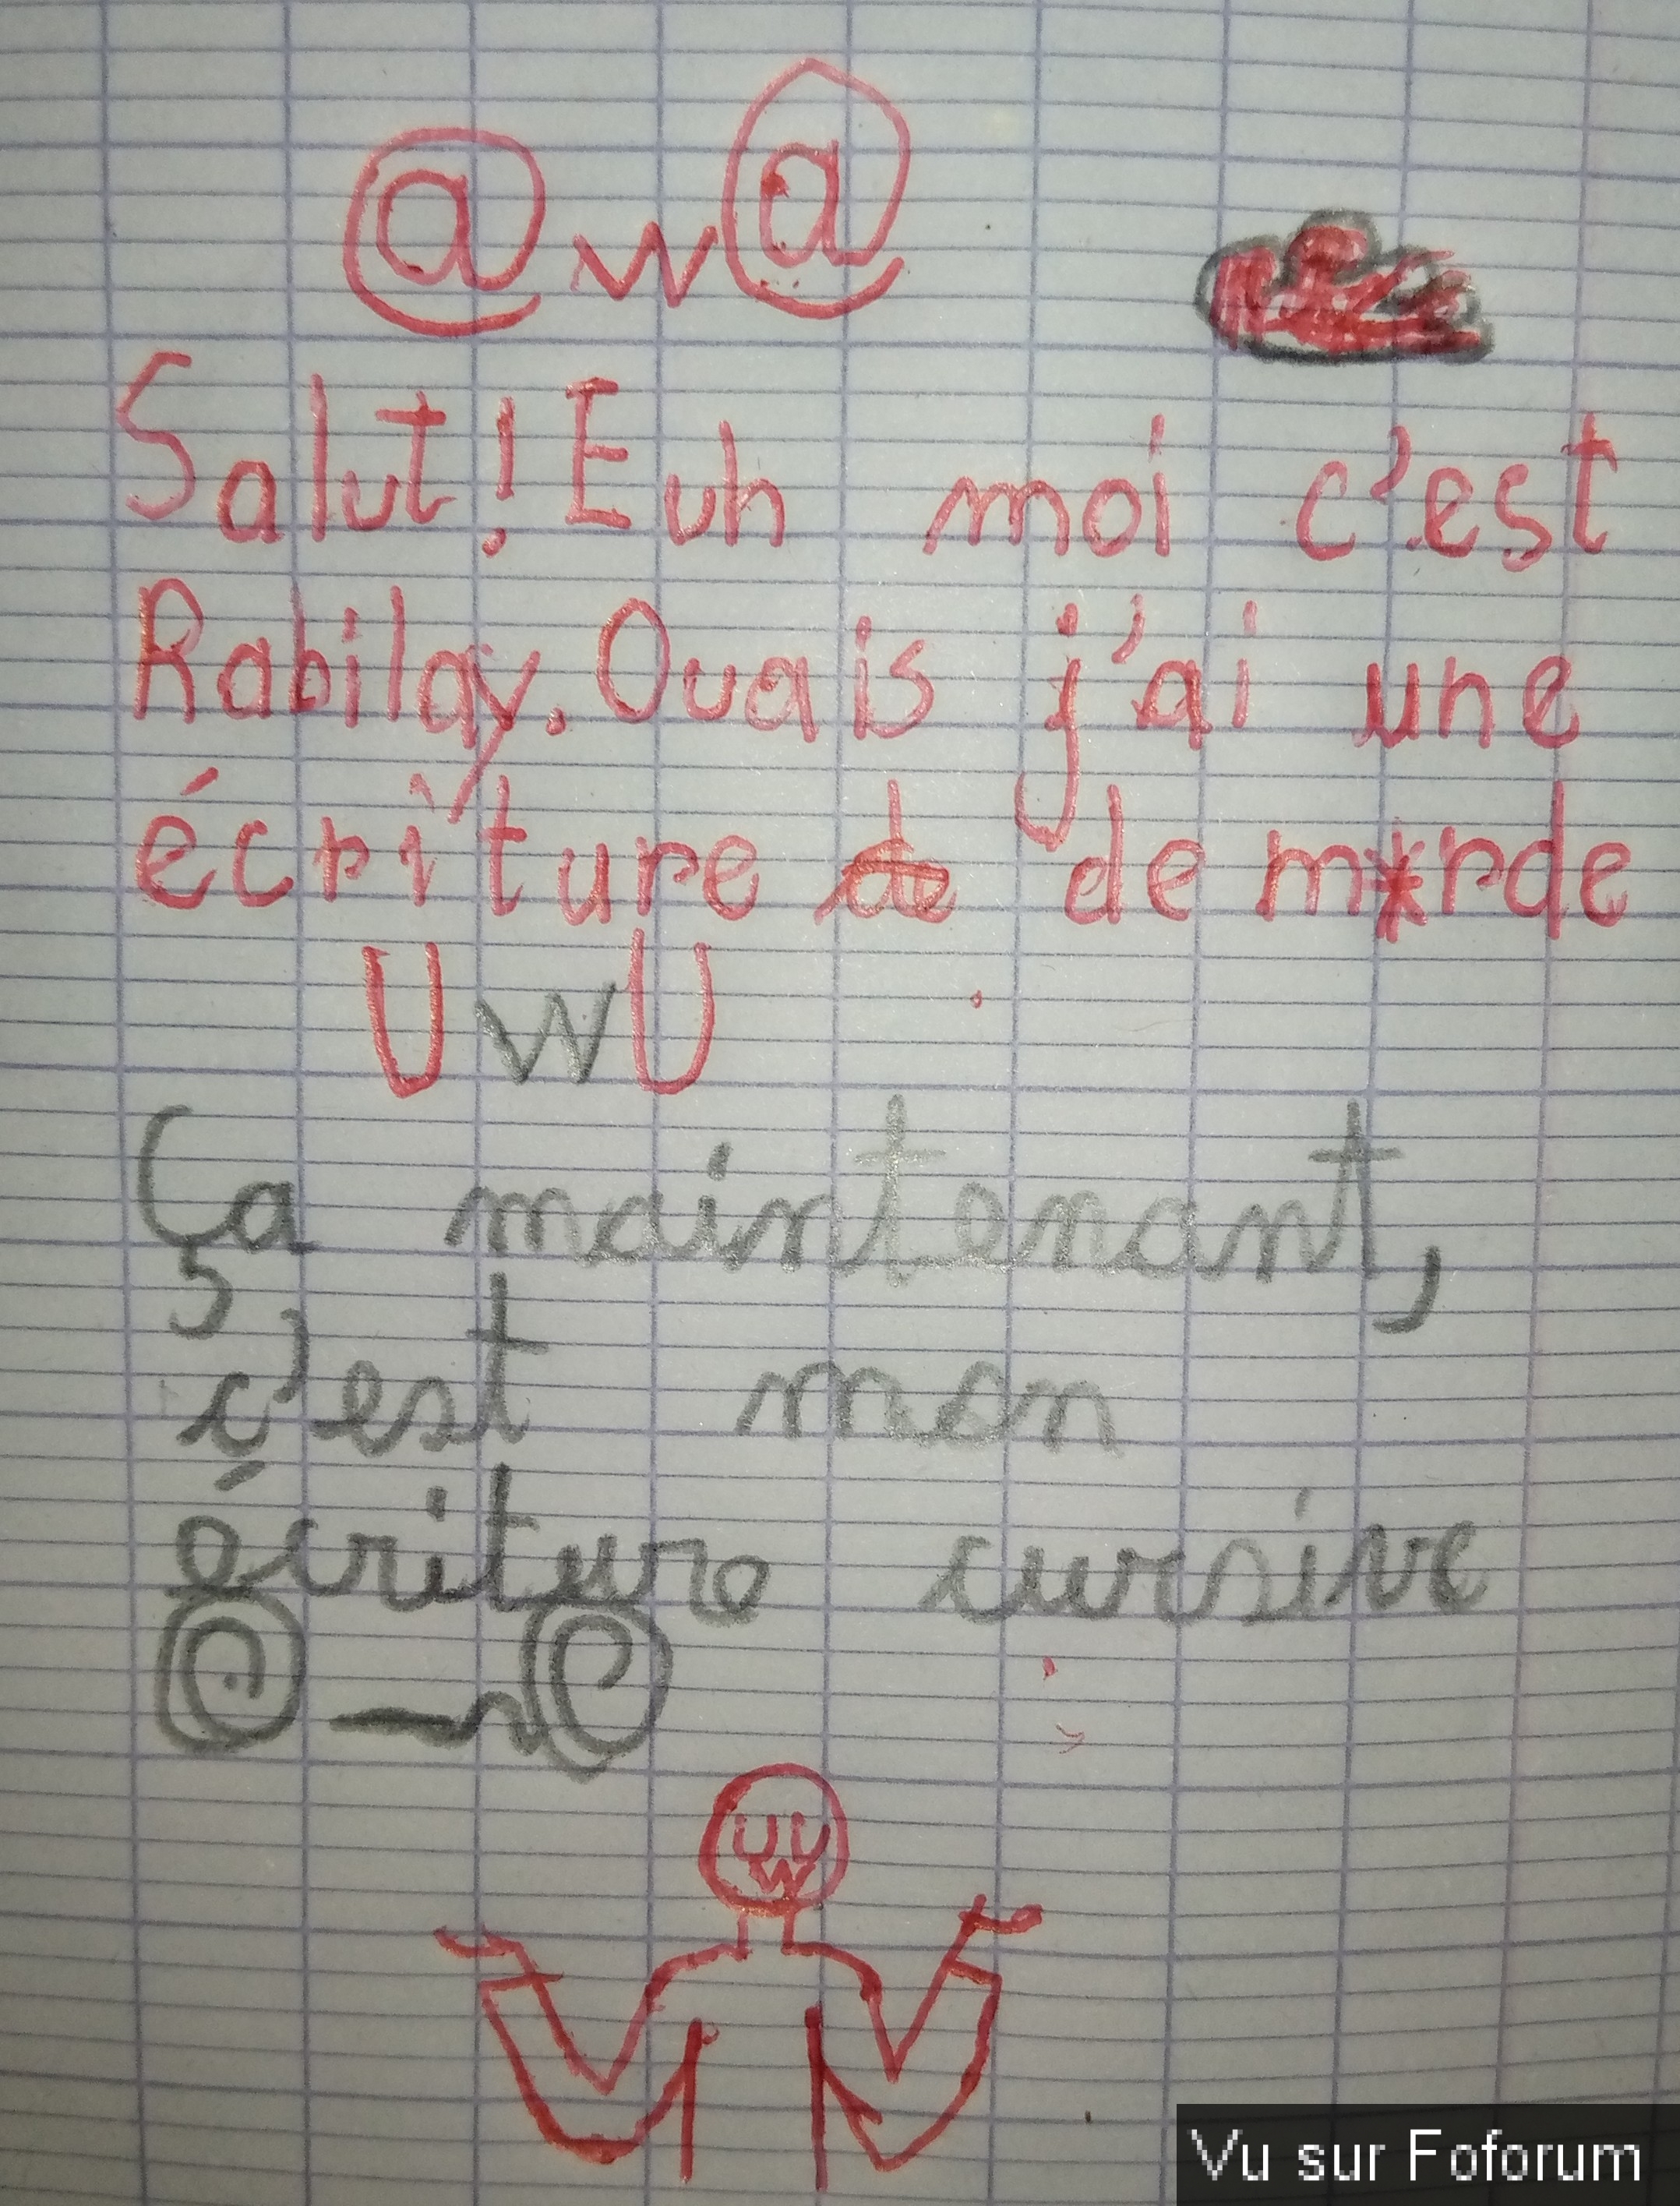 @w@
Salut! Euh moi c'est
Rabilay. Ouais j'ai une
écriture de de m*rde
UwU
Ça maintenant,
c'est mon
écriture cursive
UwU
Vu sur Foforum